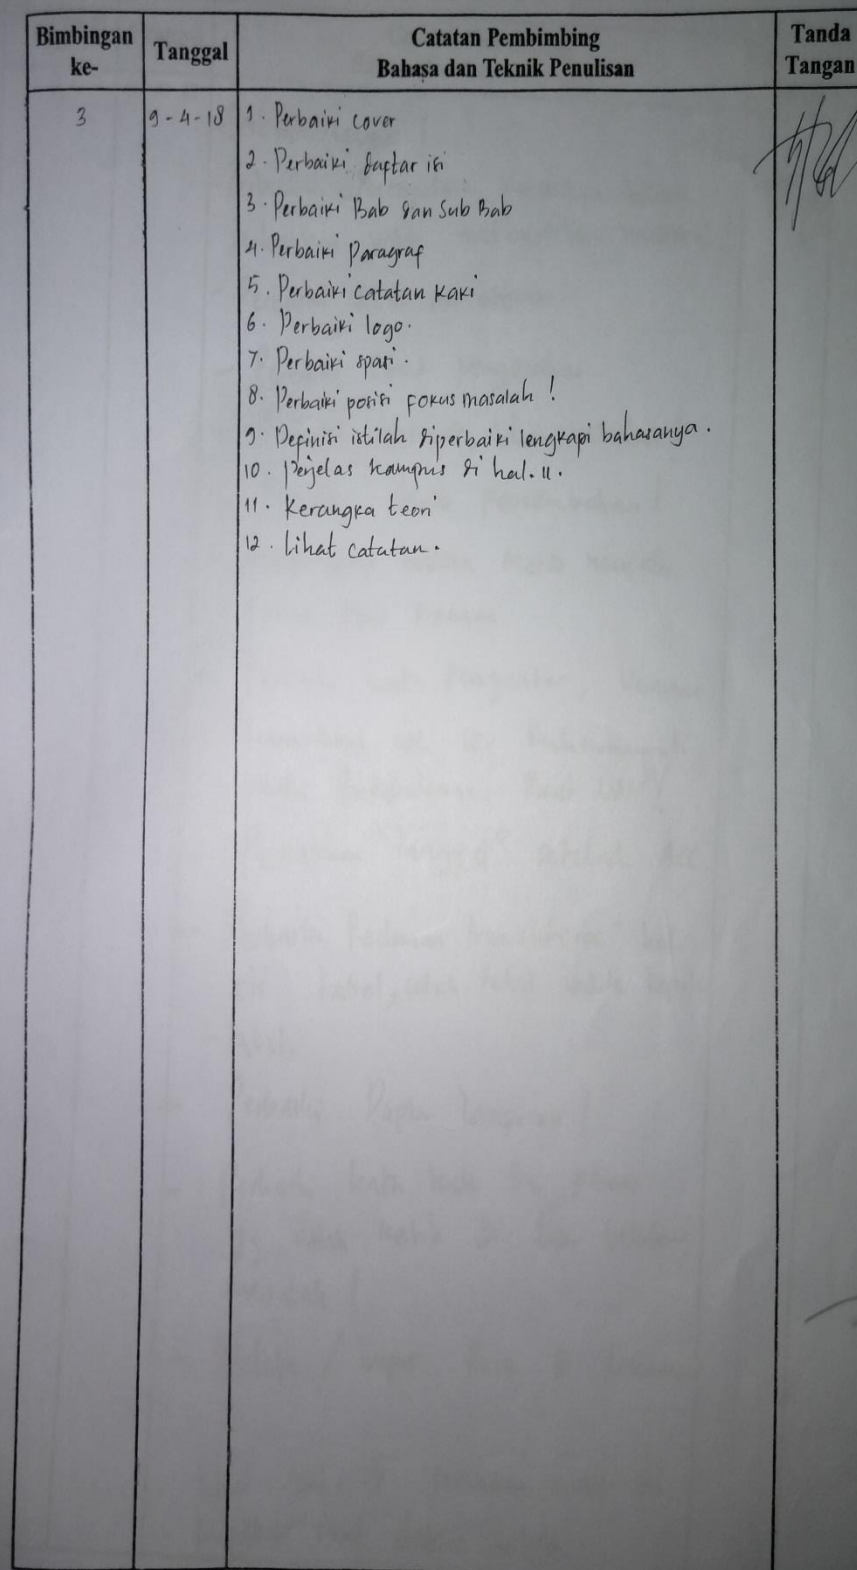 Bimbingan ke-
Tanggal
Catatan Pembimbing
Bahasa dan Teknik Penulisan
Tanda Tangan
3
9-4-18
1. Perbaiki cover
2. Perbaiki daftar isi
3. Perbaiki Bab dan Sub Bab
4. Perbaiki Paragraf
5. Perbaiki catatan kaki
6. Perbaiki logo.
7. Perbaiki spasi.
8. Perbaiki posisi fokus masalah !
9. Definisi istilah diperbaiki lengkapi bahasanya.
10. Penjelas kampus di hal. 11.
11. Kerangka teori
12. Lihat catatan.